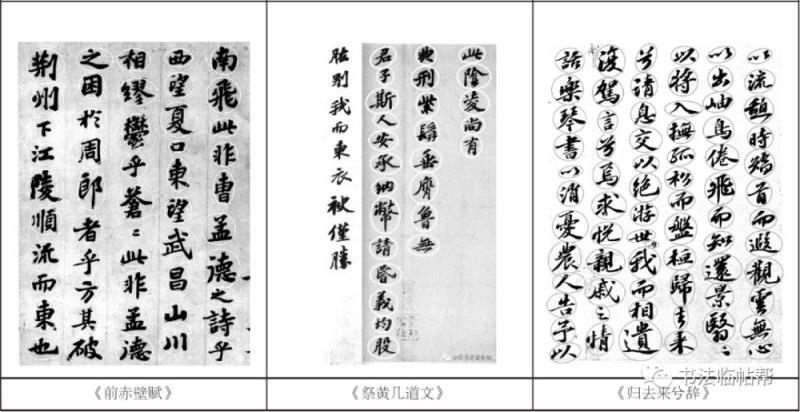 南飛此非曹孟德之詩乎
西望夏口東望武昌山川
相繆鬱乎蒼〻此非孟德
之困於周郎者乎方其破
荆州下江陵順流而東也
《前赤壁赋》
此陰淩尚有
典刑紫髯垂膺魯無
君子斯人安承納幣請昏義均股
肱别我而東衣袂僅勝
《祭黄几道文》
以流憩時矯首而遐觀雲無心
以出岫鳥倦飛而知還景翳〻
以將入撫孤松而盤桓歸去来
兮請息交以絶游世我而相遺
復駕言兮焉求悦親戚之情
話樂琴書以消憂農人告予以
书法临帖帮
《归去来兮辞》